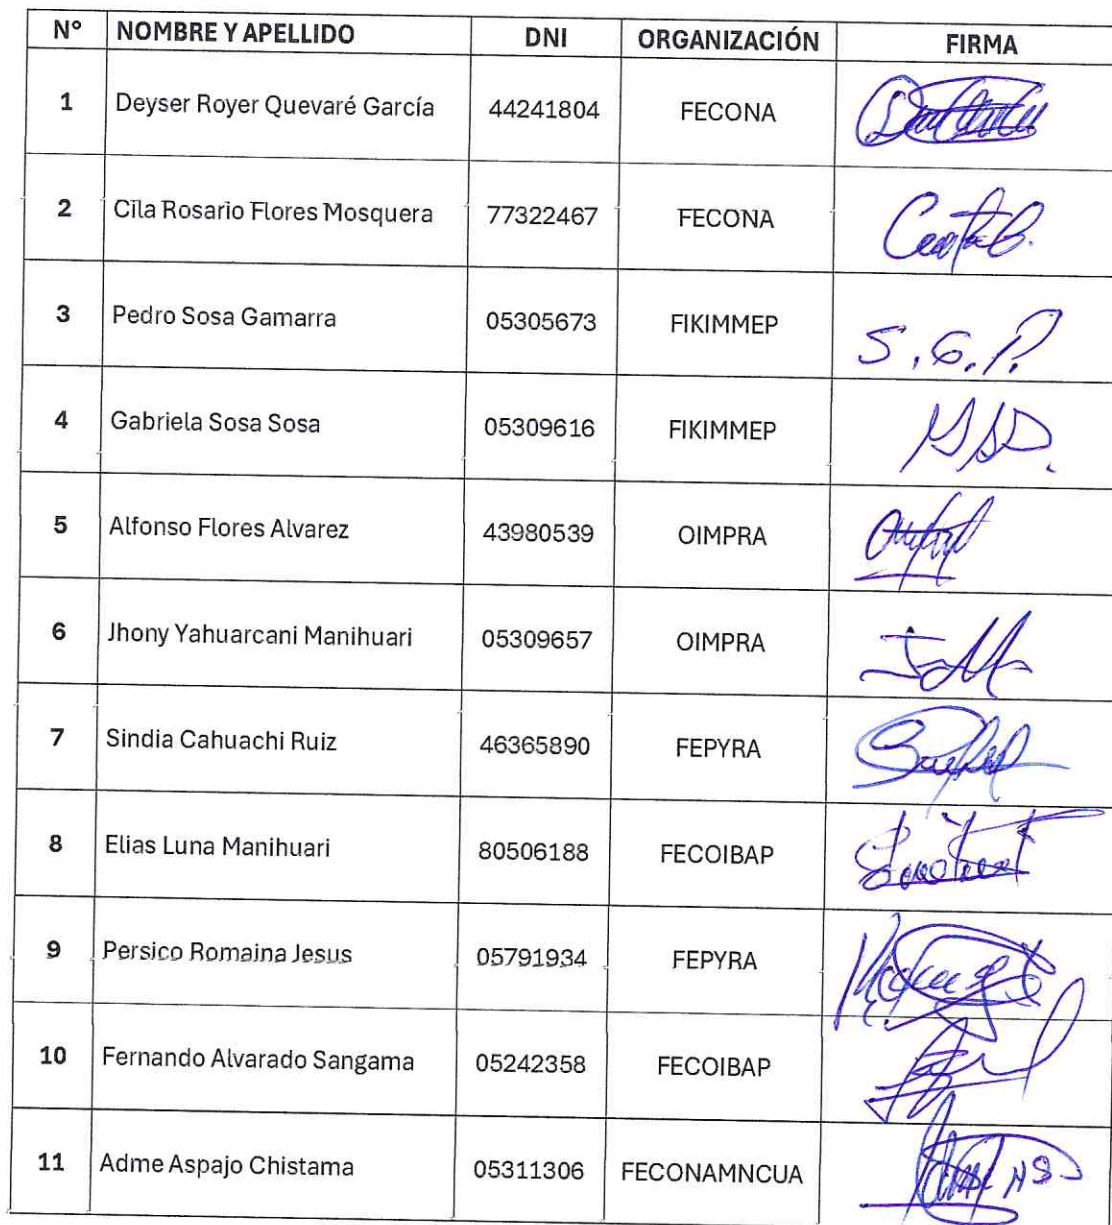 N° NOMBRE Y APELLIDO DNI ORGANIZACIÓN FIRMA
1 Deyser Royer Quevaré García 44241804 FECONA
2 Cila Rosario Flores Mosquera 77322467 FECONA
3 Pedro Sosa Gamarra 05305673 FIKIMMEP S.G.P.
4 Gabriela Sosa Sosa 05309616 FIKIMMEP
5 Alfonso Flores Alvarez 43980539 OIMPRA
6 Jhony Yahuarcani Manihuari 05309657 OIMPRA
7 Sindia Cahuachi Ruiz 46365890 FEPYRA
8 Elias Luna Manihuari 80506188 FECOIBAP
9 Persico Romaina Jesus 05791934 FEPYRA
10 Fernando Alvarado Sangama 05242358 FECOIBAP
11 Adme Aspajo Chistama 05311306 FECONAMNCUA